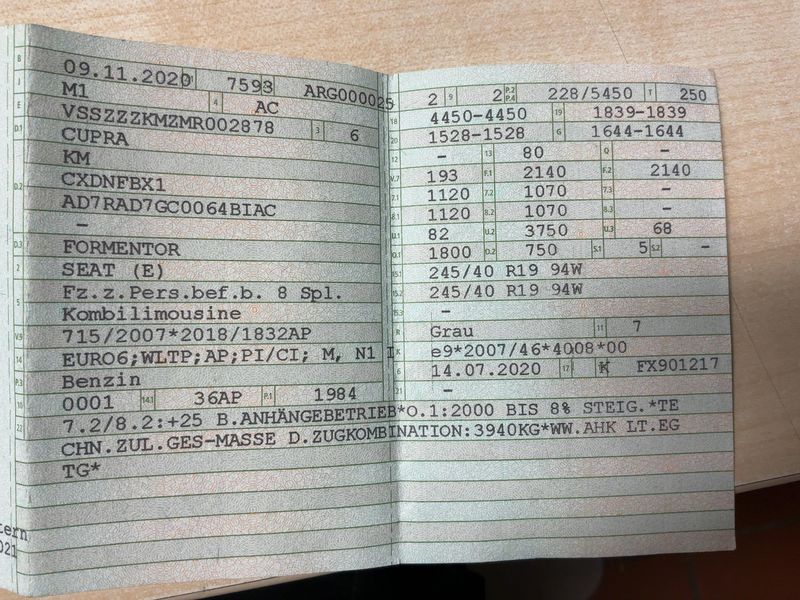 B 09.11.2020 7593 ARG000025
J M1 4 AC
E VSSZZZKMZMR002878 3 6
D.1 CUPRA
KM
D.2 CXDNFBX1
AD7RAD7GC0064BIAC
-
D.3 FORMENTOR
2 SEAT (E)
5 Fz.z.Pers.bef.b. 8 Spl.
Kombilimousine
V.9 715/2007*2018/1832AP
14 EURO6;WLTP;AP;PI/CI; M, N1 I
P.3 Benzin
10 0001 14.1 36AP P.1 1984
2 9 2 P.2 P.4 228/5450 T 250
18 4450-4450 19 1839-1839
20 1528-1528 G 1644-1644
12 - 13 80 Q -
V.7 193 F.1 2140 F.2 2140
7.1 1120 7.2 1070 7.3 -
8.1 1120 8.2 1070 8.3 -
U.1 82 U.2 3750 U.3 68
O.1 1800 O.2 750 S.1 5 S.2 -
15.1 245/40 R19 94W
15.2 245/40 R19 94W
15.3 -
R Grau 11 7
K e9*2007/46*4008*00
6 14.07.2020 17 K FX901217
21 -
22 7.2/8.2:+25 B.ANHÄNGEBETRIEB*O.1:2000 BIS 8% STEIG.*TE
CHN.ZUL.GES-MASSE D.ZUGKOMBINATION:3940KG*WW.AHK LT.EG
TG*
tern
021